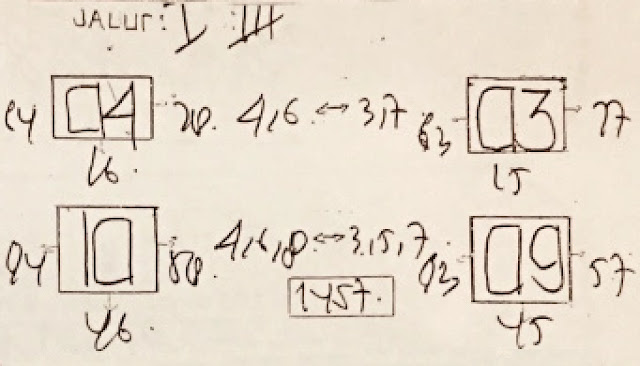 JALUR: I III
24 04 28. 4,6. ↔ 3,7 83 03 77
26. 25
84 10 58. 4,6,8 ↔ 3,5,7. 83 09 57
46. 1457. 45